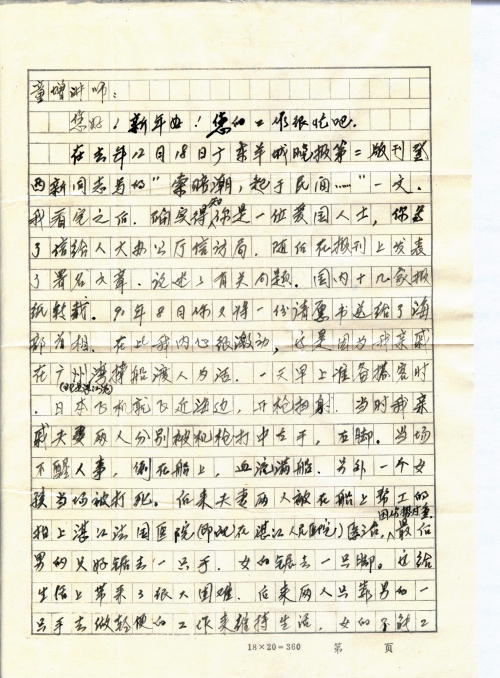 童增讲师：
您好！新年好！您的工作很忙吧。
在去年12月18日广东羊城晚报第二版刊登
西新同志写的"索赔潮，起于民间……"一文，
我看完之后，确实得知你是一位爱国人士，你写
了信给人大办公厅信访局。随后在报刊上发表
了署名文章，论述了有关问题。国内十几家报
纸转载。91年8日你又将一份请愿书送给了海
部首相。在此我内心很激动，这是因为我亲戚
在广州湾撑船渡人为活。一天早上准备搭客时
(现是湛江港)
，日本飞机就飞近海边，开枪扫射。当时我亲
戚夫妻两人分别被机枪打中左手，左脚。当场
不醒人事，倒在船上，血流满船。另外一个女
孩当场被打死。后来夫妻两人被在船上帮工的
抬上湛江法国医院(即现在湛江人民医院)医治，因伤势过重，最后
男的只好锯去一只手，女的锯去一只脚。这给
生活上带来了很大困难。后来两人只靠男的一
只手去做轻便的工作来维持生活，女的不能工
18×20=360 第 页